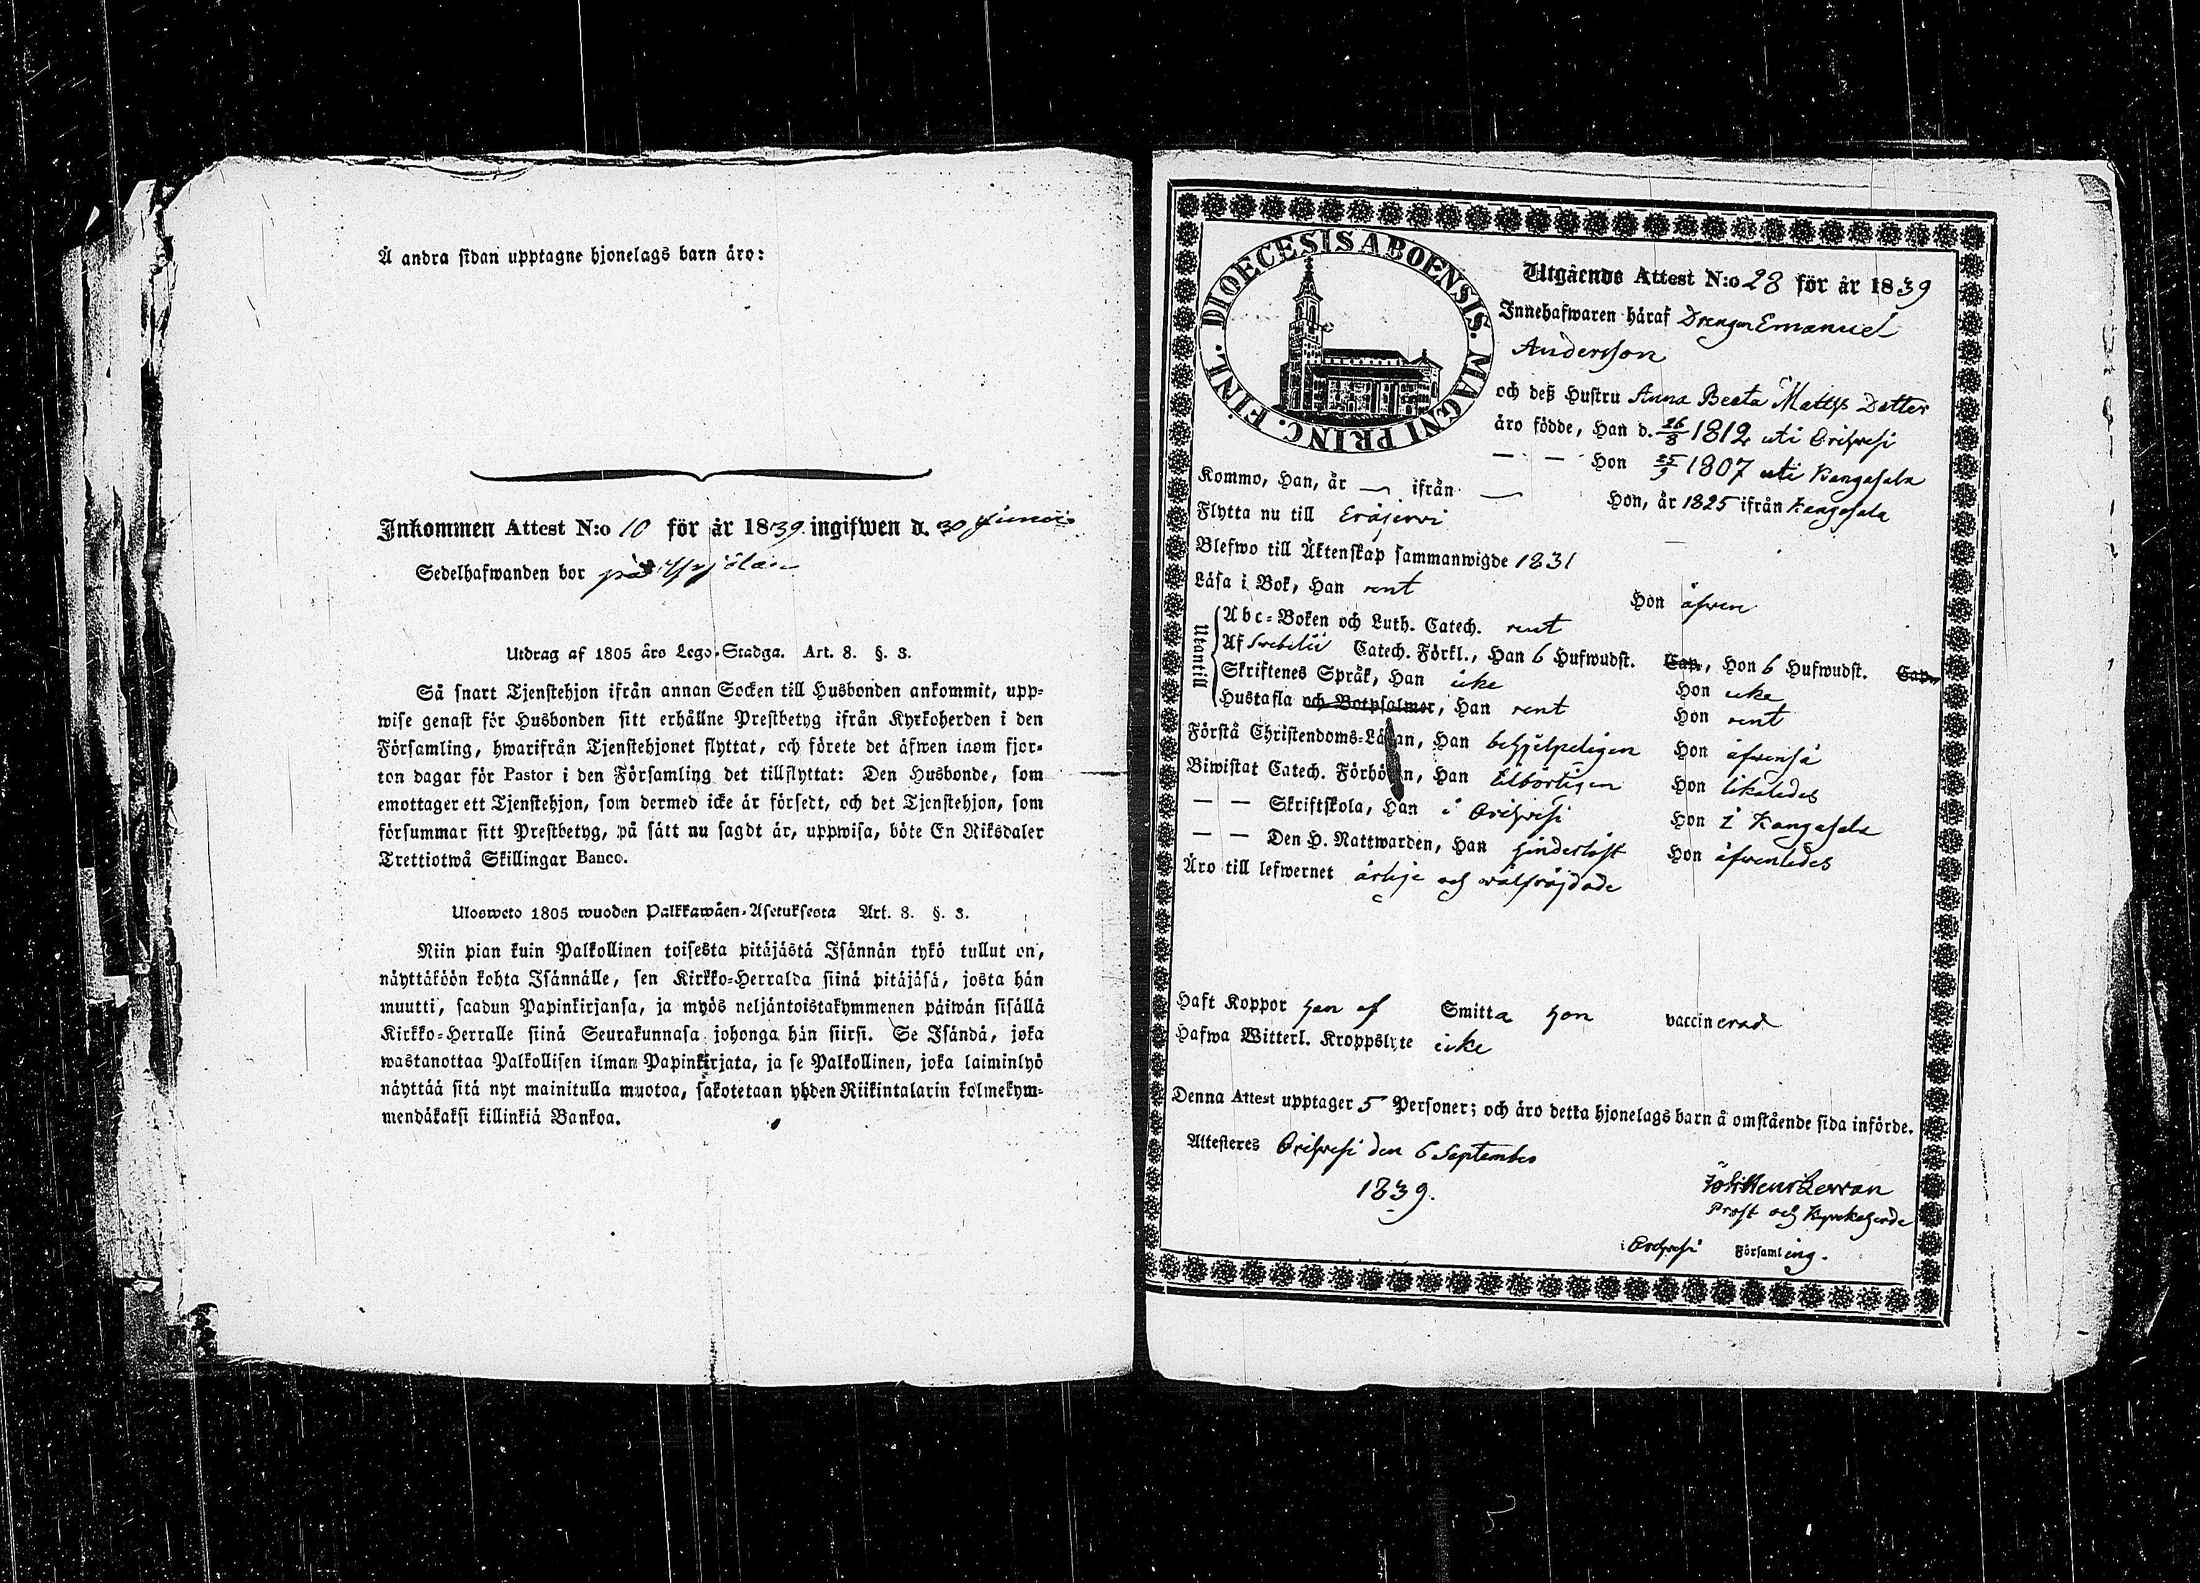 Å andra sidan upptagne hjonelags barn äro:
Inkommen Attest N:o 10 för år 1839 ingifwen d. 30
Sedelhafwanden bor på
Utdrag af 1805 års Lego-Stadga. Art. 8. §. 3.
Så snart Tjenstehjon ifrån annan Socken till Husbonden ankommit, upp-
wise genast för Husbonden sitt erhållne Prestbetyg ifrån Kyrkoherden i den
Församling, hwarifrån Tjenstehjonet flyttat, och förete det äfwen inom fjor-
ton dagar för Pastor i den Församling det tillflyttat: Den Husbonde, som
emottager ett Tjenstehjon, som dermed icke är försedt, och det Tjenstehjon, som
försummar sitt Prestbetyg, på sätt nu sagdt är, uppwisa, böte En Riksdaler
Trettiotwå Skillingar Banco.
Ulosweto 1805 wuoden Palkkawäen-Asetuksesta Art. 8. §. 3.
Niin pian kuin Palkollinen toisesta pitäjästä Isännän tykö tullut on,
näyttäköön kohta Isännälle, sen Kirkko-Herralda siinä pitäjäsä, josta hän
muutti, saadun Papinkirjansa, ja myös neljäntoistakymmenen päiwän sisällä
Kirkko-Herralle siinä Seurakunnasa johonga hän siirsi. Se Isändä, joka
wastanottaa Palkollisen ilman Papinkirjata, ja se Palkollinen, joka laiminlyö
näyttää sitä nyt mainitulla muotoa, sakotetaan yhden Riikintalarin kolmekym-
mendäkaksi killinkiä Bankoa.
DIOECESIS ABOENSIS. MAGNI PRINC. FINL.
Utgående Attest N:o 28 för år 1839
Innehafwaren häraf Drengen Emanuel
Andersson
och deß Hustru Anna Beata Matts Dotter
äro födde, Han d. 26/8 1812 uti Orihvesi
— — Hon 25/9 1807 uti Kangasala
Kommo, Han, år — ifrån — Hon, år 1825 ifrån Kangasala
Flytta nu till Eräjerwi
Blefwo till Äktenskap sammanwigde 1831
Läsa i Bok, Han rent Hon äfwen
Utantill
Abc-Boken och Luth. Catech. rent
Af Svebilii Catech. Förkl., Han 6 Hufwudst. Cap., Hon 6 Hufwudst. Cap.
Skriftenes Språk, Han icke Hon icke
Hustafla och Botpsalmer, Han rent Hon rent
Förstå Christendoms-Läran, Han behjelpeligen Hon äfwenså
Biwistat Catech. Förhören, Han Hon likaledes
— — Skriftskola, Han i Orihvesi Hon i Kangasala
— — Den H. Nattwarden, Han hinderlöst Hon äfwenledes
Äro till lefwernet ärlige och wälfräjdade
Haft Koppor han af Smitta hon vaccinerad
Hafwa Witterl. Kroppslyte icke
Denna Attest upptager 5 Personer; och äro detta hjonelags barn å omstående sida införde.
Attesteres Orihvesi den 6 September
1839.
Prost och Kyrkoherde
i Orihvesi Församling.